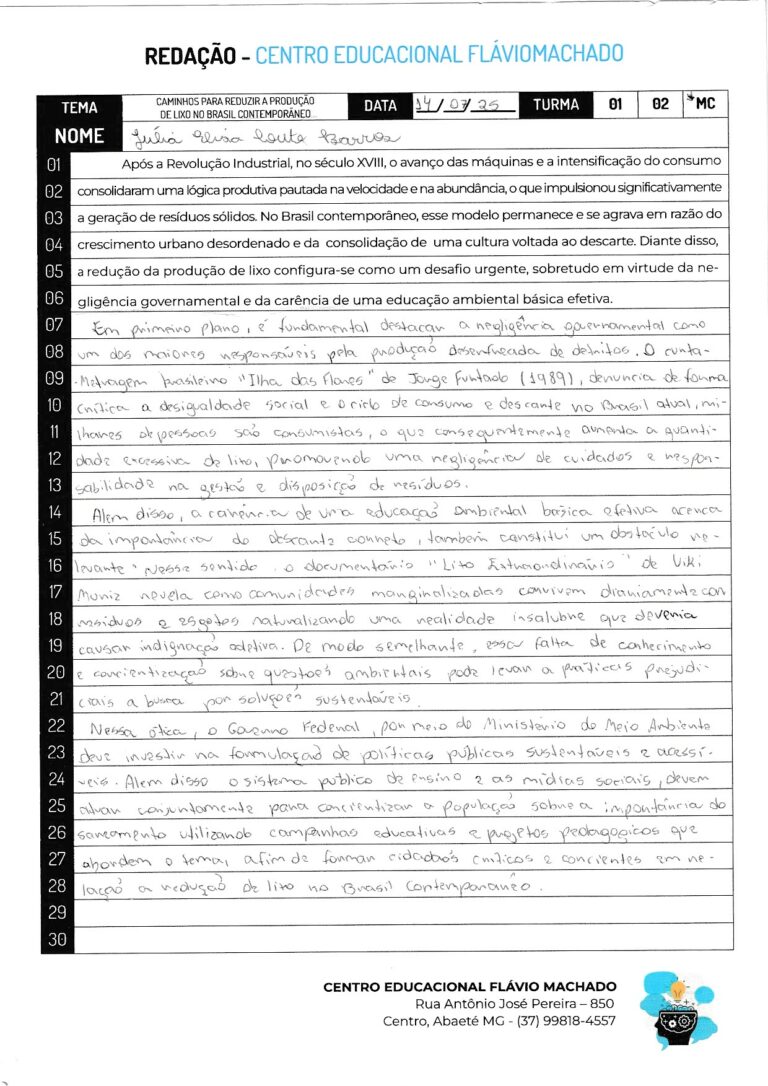 REDAÇÃO – CENTRO EDUCACIONAL FLÁVIOMACHADO
TEMA CAMINHOS PARA REDUZIR A PRODUÇÃO DATA 14/07/25 TURMA 01 02 *MC
DE LIXO NO BRASIL CONTEMPORÂNEO
NOME Júlia Elisa Couto Barros
01 Após a Revolução Industrial, no século XVIII, o avanço das máquinas e a intensificação do consumo
02 consolidaram uma lógica produtiva pautada na velocidade e na abundância, o que impulsionou significativamente
03 a geração de resíduos sólidos. No Brasil contemporâneo, esse modelo permanece e se agrava em razão do
04 crescimento urbano desordenado e da consolidação de uma cultura voltada ao descarte. Diante disso,
05 a redução da produção de lixo configura-se como um desafio urgente, sobretudo em virtude da ne-
06 gligência governamental e da carência de uma educação ambiental básica efetiva.
07 Em primeiro plano, é fundamental destacar a negligência governamental como
08 um dos maiores responsáveis pela produção desenfreada de detritos. O curta-
09 -Metragem brasileiro "Ilha das Flores" de Jorge Furtado (1989), denuncia de forma
10 crítica a desigualdade social e o ciclo de consumo e descarte no Brasil atual, mi-
11 lhares de pessoas são consumistas, o que consequentemente aumenta a quanti-
12 dade excessiva de lixo, promovendo uma negligência de cuidados e respon-
13 sabilidade na gestão e disposição de resíduos.
14 Alem disso, a carência de uma educação ambiental basica efetiva acerca
15 da importância do descarte correto, também constitui um obstáculo re-
16 levante" Nesse sentido, o documentário "Lixo Extraordinário" de Viki
17 Muniz revela como comunidades marginalizadas convivem diariamente con
18 residuos e esgotos naturalizando uma realidade insalubre que deveria
19 causar indignação coletiva. De modo semelhante, essa falta de conhecimento
20 e concientização sobre questões ambientais pode levar a práticas prejudi-
21 ciais a busca por soluções sustentáveis.
22 Nessa ótica, o Governo Federal, por meio do Ministério do Meio Ambiente
23 deve investir na formulação de políticas públicas sustentáveis e acessí-
24 veis. Alem disso o sistema público de ensino e as mídias sociais, devem
25 atuar conjuntamente para concientizar a população sobre a importância do
26 saneamento utilizando campanhas educativas e projetos pedagogicos que
27 abordem o tema, afim de formar cidadãos críticos e concientes em re-
28 lação a redução de lixo no Brasil Contemporanêo.
29
30
CENTRO EDUCACIONAL FLÁVIO MACHADO
Rua Antônio José Pereira – 850
Centro, Abaeté MG - (37) 99818-4557